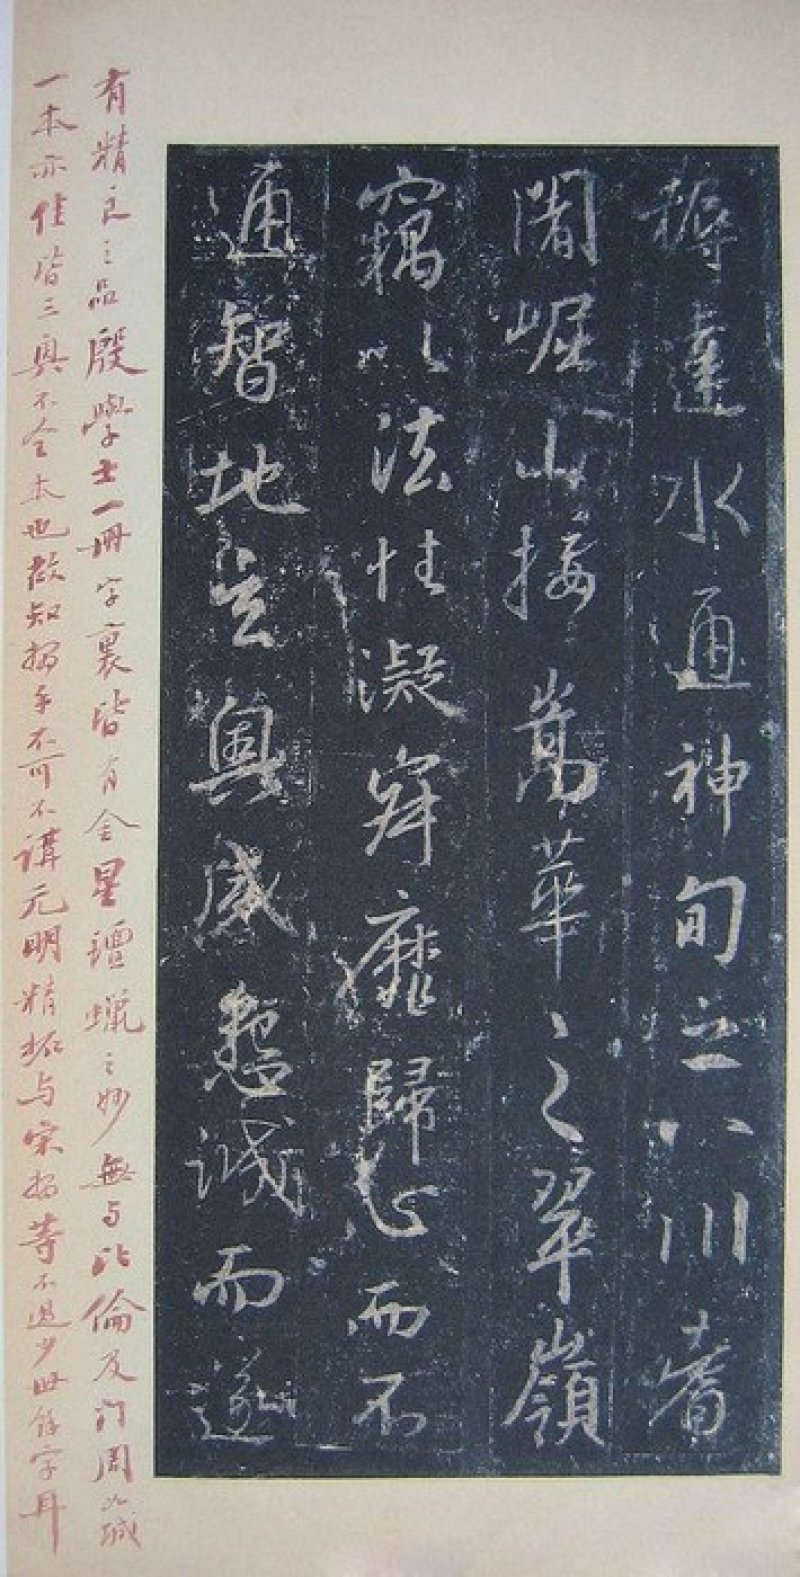 耨達水通神甸之八川耆
闍崛山接嵩華之翠嶺
竊以法性凝寂靡歸心而不
通智地玄奧感懇誠而遂
有精良之品殷學士一冊字裏皆有金星氊蠟之妙無与比倫及门周
一本亦佳皆三奥不全本也故知搨手不可不講元明精拓与宋搨等不過少餘字耳